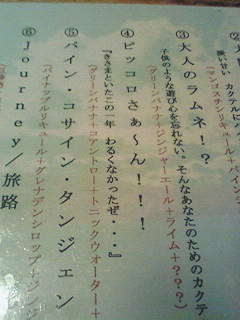 狭い甘い カクテルに
(マンゴスチンリキュール+パイン
③大人のラムネ!?
子供のような遊び心を忘れない。そんなあなたのためのカクテ
(グリーンバナナ+ジンジャーエール+ライム+???)
④ピッコロさぁ~ん!!!
『きさまといたこの一年 わるくなかったぜ・・・』
(グリーンバナナ+コアントロー+トニックウォーター+
⑤パイン・コサイン・タンジェン
(パイナップルリキュール+グレナデンシロップ+ジンジ
⑥Journey/旅路